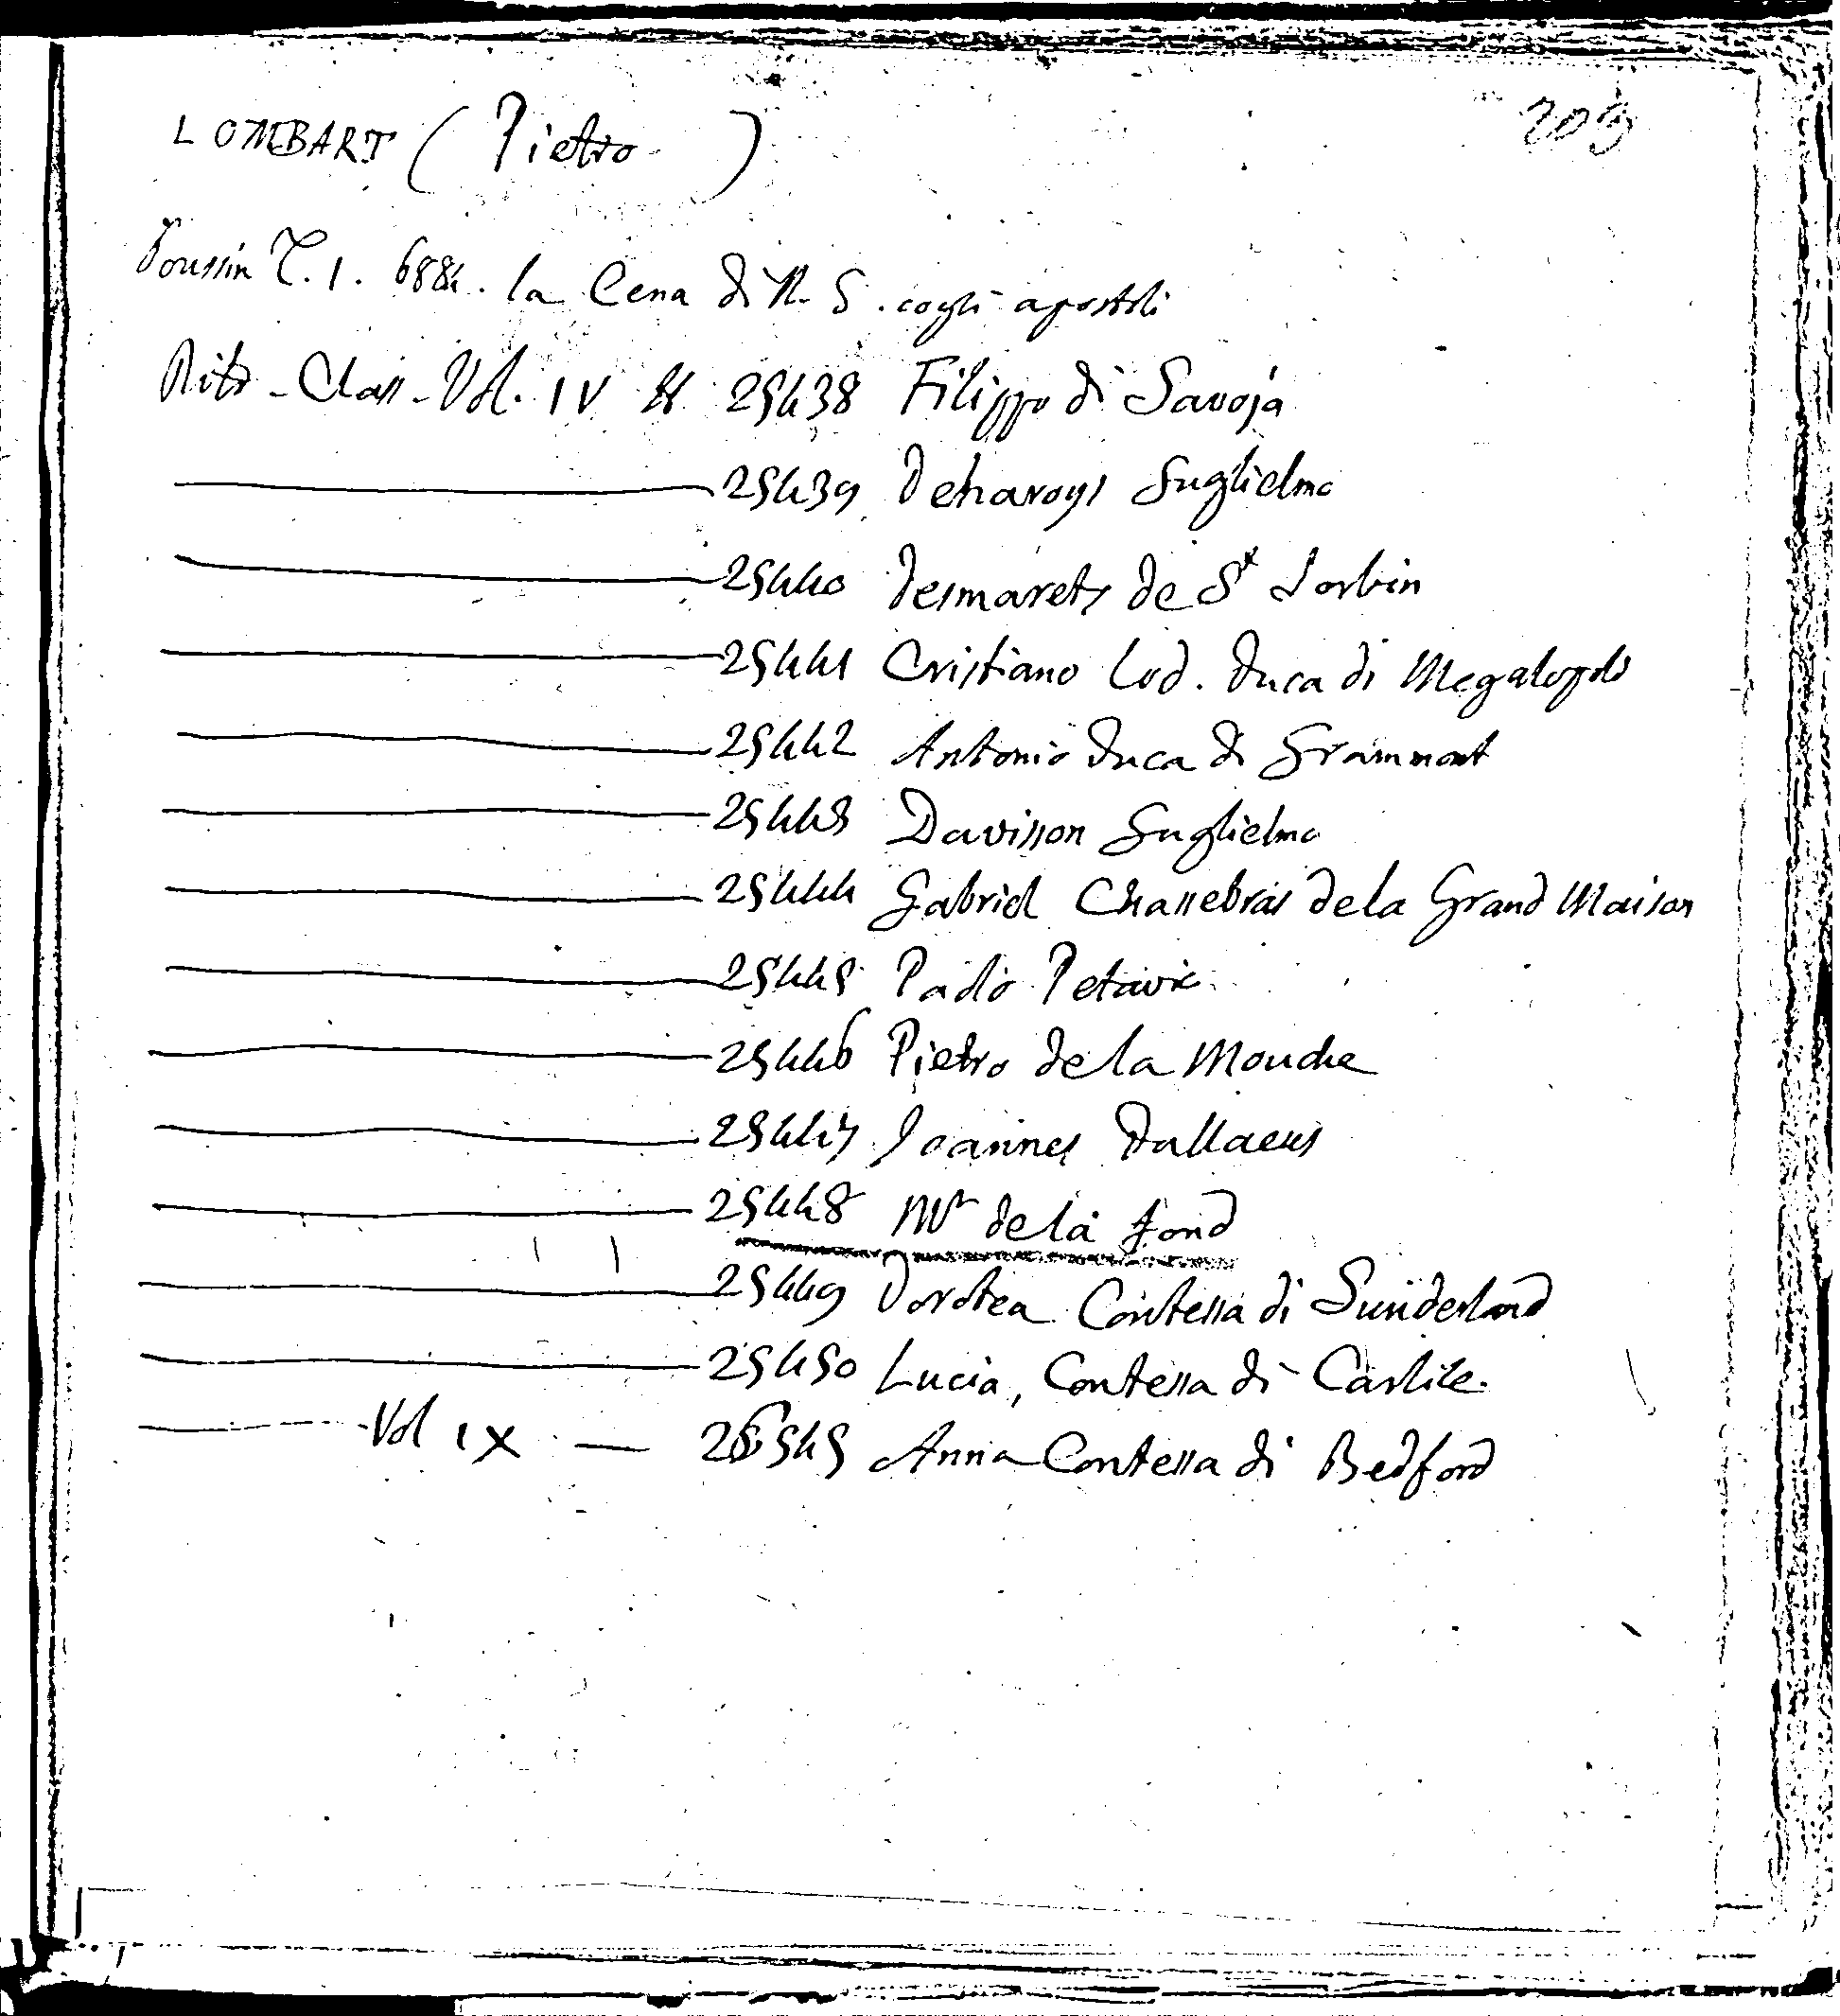 209
LOMBART (Pietro)
Poussin T. 1. 6884. la Cena di N. S. cogli apostoli
Ritr - Class - Vol. IV N 25438 Filippo di Savoja
25439 Deharoys Guglielmo
25440 Desmarets de St Sorbin
25441 Cristiano Lod. Duca di Megalopoli
25442 Antonio Duca di Grammont
25443 Davisson Guglielmo
25444 Gabriel Chassebras dela Grand Maison
25445 Paolo Petavio
25446 Pietro de la Mouche
25447 Joannes Dallaeus
25448 Mr de la fond
25449 Dorotea Contessa di Sunderland
25450 Lucia, Contessa di Carlile.
Vol IX — 26545 Anna Contessa di Bedford